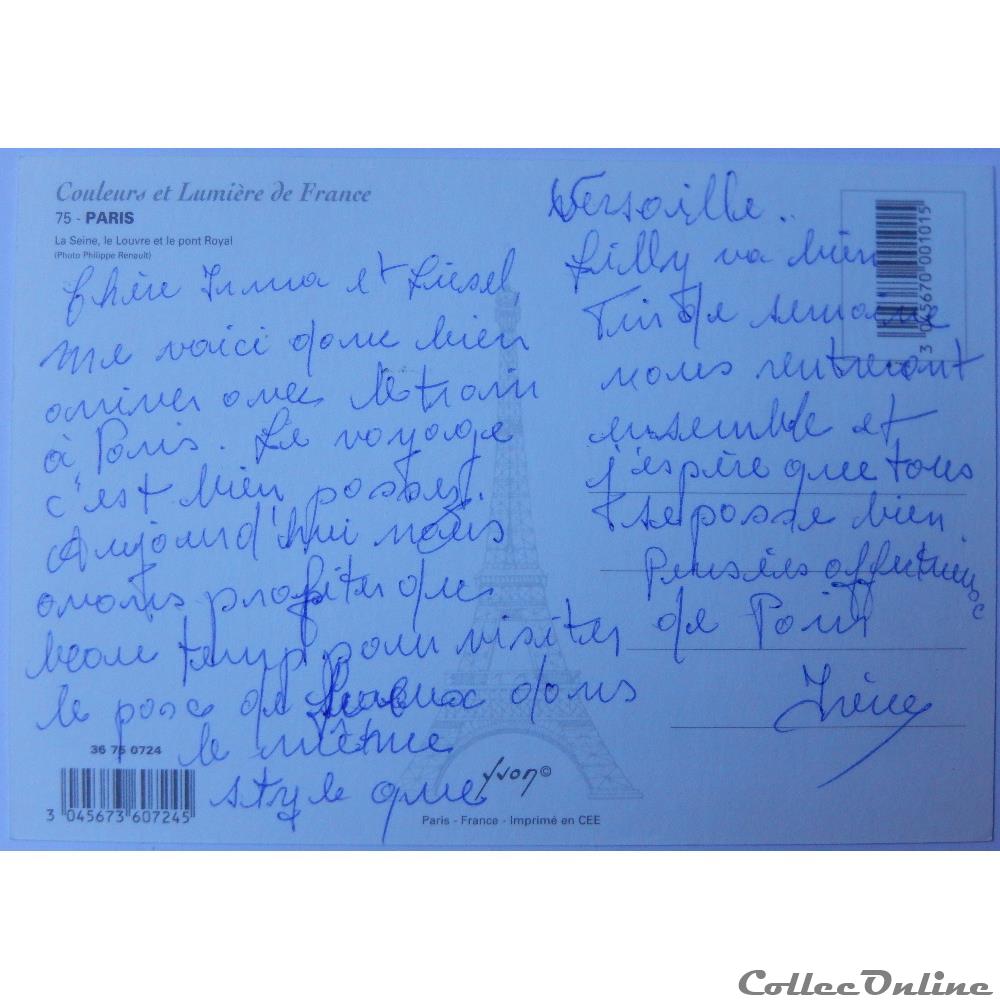 Couleurs et Lumière de France
75 - PARIS
La Seine, le Louvre et le pont Royal
(Photo Philippe Renault)
Chère Irma et Liesel,
me voici donc bien
arriver avec le train
à Paris. Le voyage
c'est bien passez.
Aujourd'hui nous
avons profiter du
beau temp pour visiter
le parc de dans
le même
style que
Versaille..
Lilly va bien
Fin de semaine
nous rentreront
ensemble et
j'espère que tous
se passe bien
Pensées
de Paris
Irène
36 75 0724
3 045673 607245
3 045670 001015
yvon©
Paris - France - Imprimé en CEE
CollecOnline